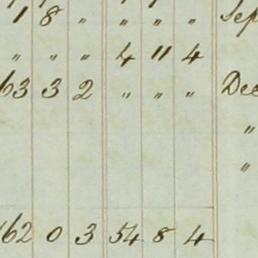 1 8 " " " " Sep
" " " 4 11 4
63 3 2 " " " Dec
"
"
162 0 3 54 8 4